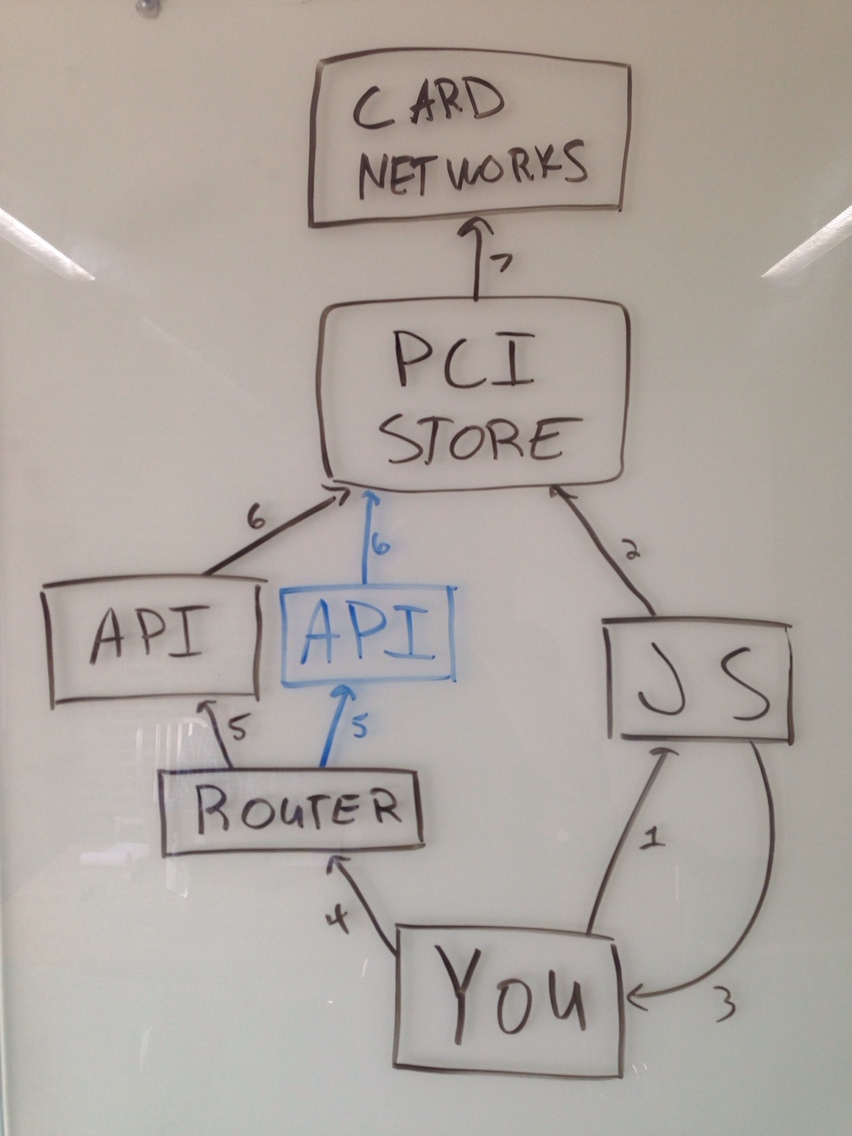 CARD
NETWORKS
7
PCI
STORE
6
6
2
API
API
JS
5
5
ROUTER
1
4
YOU
3